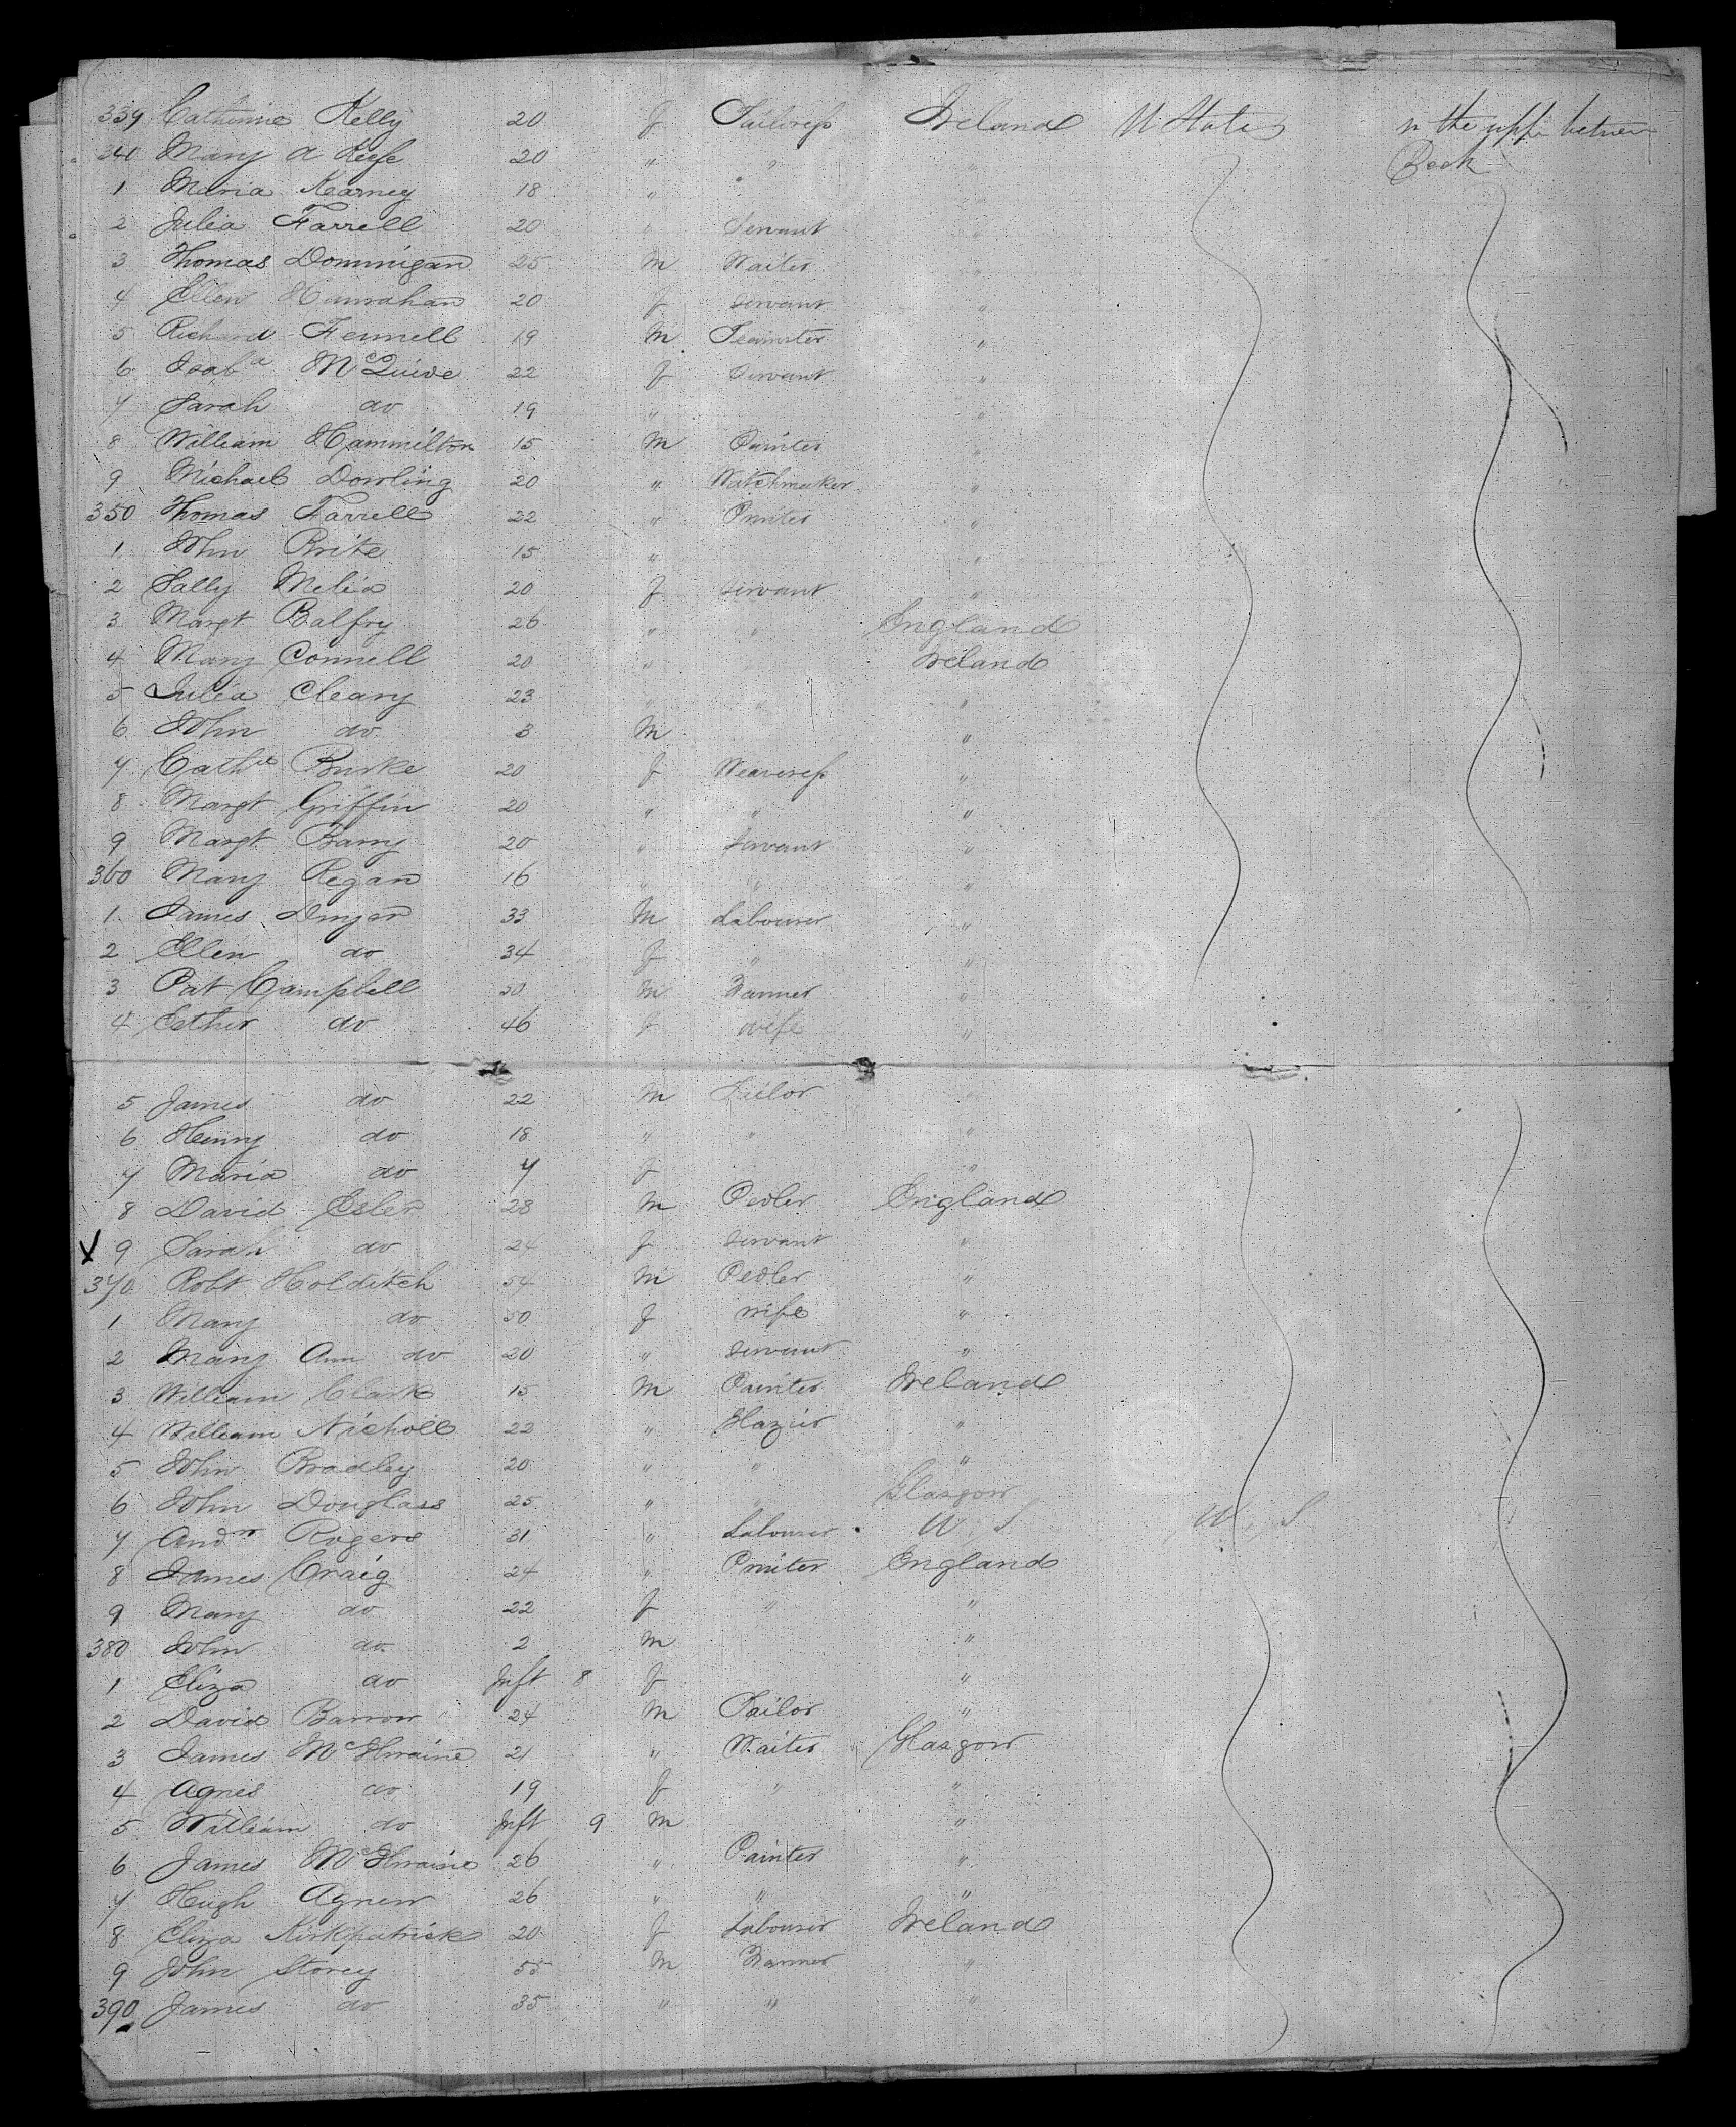 339 Catherine Kelly 20 f Tailoress Ireland U States in the upper between
340 Mary A Keefe 20 " " " Deck
1 Maria Kearney 18 " " "
2 Julia Farrell 20 " Servant "
3 Thomas Dominigan 25 M Waiter "
4 Ellen Hanrahan 20 f Servant "
5 Richard Fennell 19 M Teamster "
6 Isaba McQuive 22 f Servant "
7 Sarah do 19 " "
8 William Hammilton 15 M Painter "
9 Michael Dowling 20 " Watchmaker "
350 Thomas Farrell 22 " Printer "
1 John Brite 15 " "
2 Sally Melia 20 f servant "
3 Margt Balfry 26 " " England
4 Mary Connell 20 " Ireland
5 Julia Cleary 23 " " "
6 John do 3 M "
7 Cathe Burke 20 f Weaveress "
8 Margt Griffin 20 " " "
9 Margt Barry 20 " servant "
360 Mary Regan 16 " " "
1 James Dwyer 33 M Labourer "
2 Ellen do 34 f " "
3 Pat Campbell 50 M Farmer "
4 Esther do 46 f wife "
5 James do 22 M Tailor "
6 Henry do 18 " " "
7 Maria do 7 f "
8 David Esler 28 M Pedler England
X 9 Sarah do 24 f servant "
370 Robt Holditch 54 M Pedler "
1 Mary do 50 f wife "
2 Mary Ann do 20 " servant "
3 William Clark 15 M Painter Ireland
4 William Nicholl 22 " Glazier "
5 John Bradley 20 " " "
6 John Douglass 25 " " Glasgow
7 Andw Rogers 31 " Labourer U S U S
8 James Craig 24 " Printer England
9 Mary do 22 f " "
380 John do 2 M "
1 Eliza do Inft 8 f "
2 David Barrow 24 M Tailor "
3 James McIlwaine 21 " Waiter Glasgow
4 Agnes do 19 f " "
5 William do Inft 9 M "
6 James McIlwaine 26 " Painter "
7 Hugh Agnew 26 " " "
8 Eliza Kirkpatrick 20 f Labourer Ireland
9 John Storey 55 M Farmer "
390 James do 35 " " "